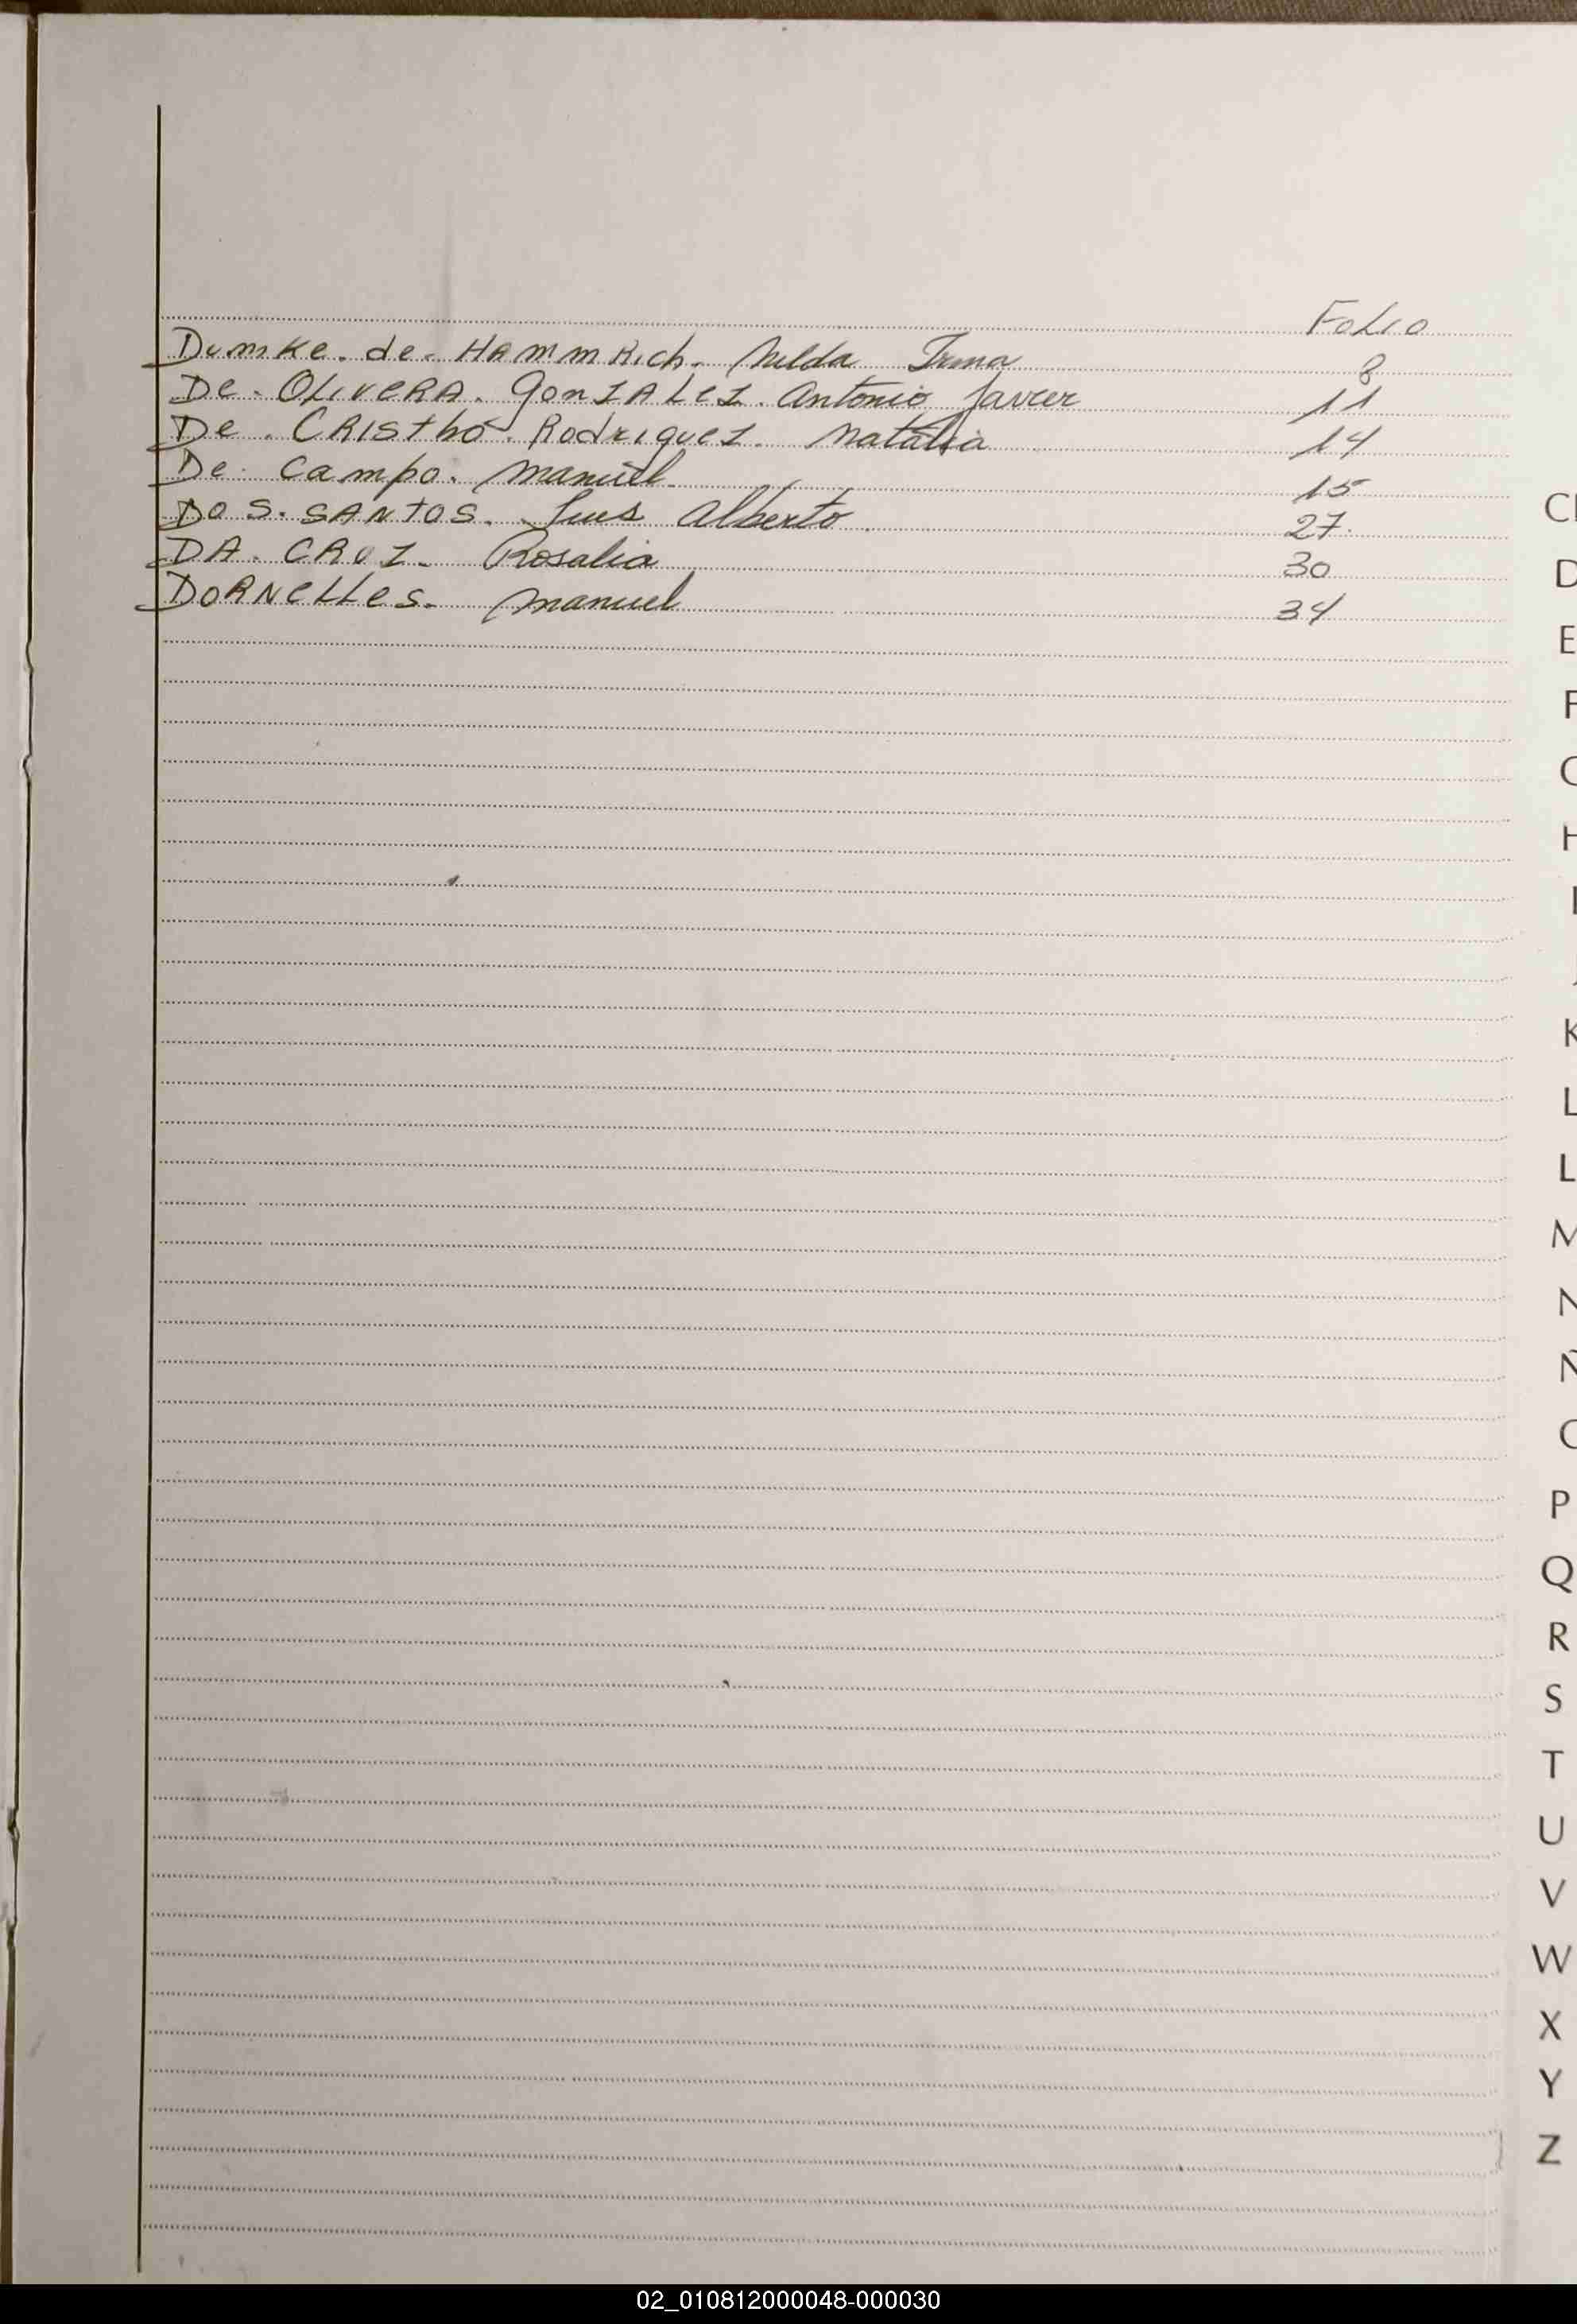 Folio
Dumke. de. HAmmRich. Nelda Irma 8
De. OLIVERA. gonZALeZ. Antonio Javier 11
De. CRIsthó. Rodriguez. Natalia 14
De. Campo. Manuel. 15
DOS. SANTOS. Luis Alberto 27.
DA. CRUZ. Rosalia 30
DORNeLLes. Manuel 34
D
E
F
H
K
L
L
M
N
Ñ
P
Q
R
S
T
U
V
W
X
Y
Z
02_010812000048-000030